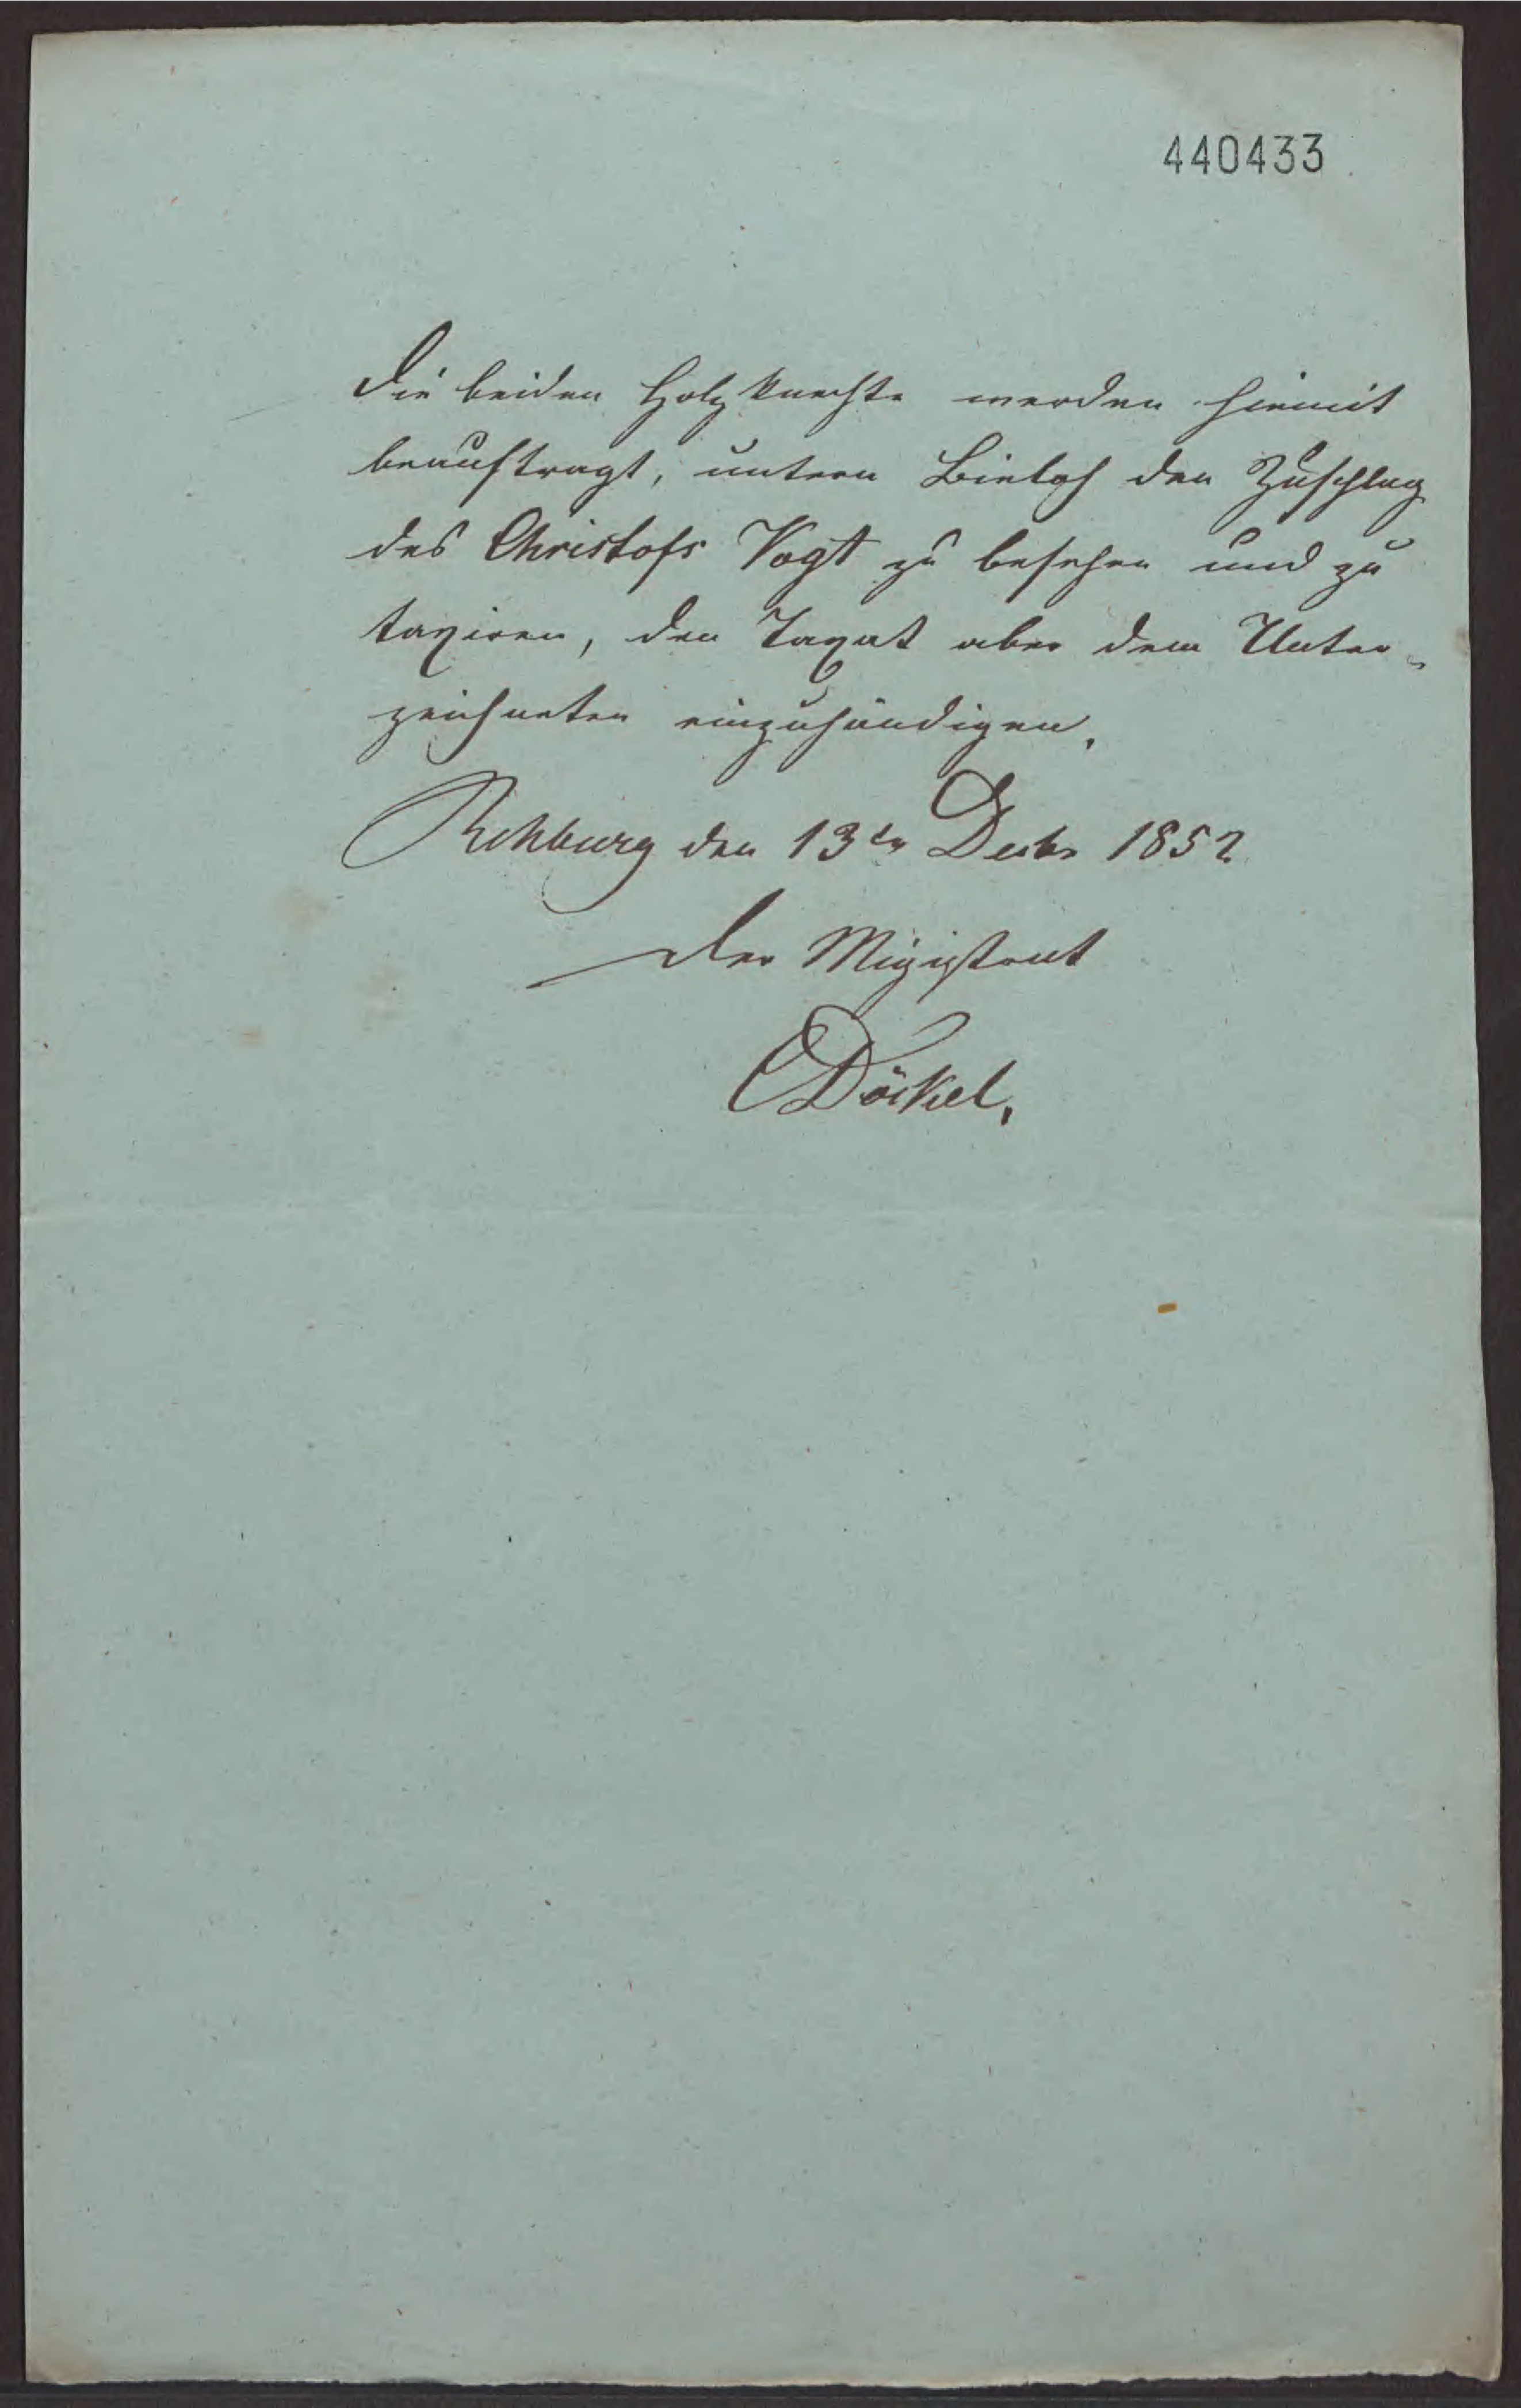 440433
Die beiden Holzknechte werden hiemit
beauftragt, untern Bieloh den Zuschlag
des Christofs Vogt zu besehen und zu
taxiren, den Taxat aber dem Unter-
zeichneten einzuhändigen.
Rehburg den 13ten Decbr 1852
Der Magistrat
EDökel.